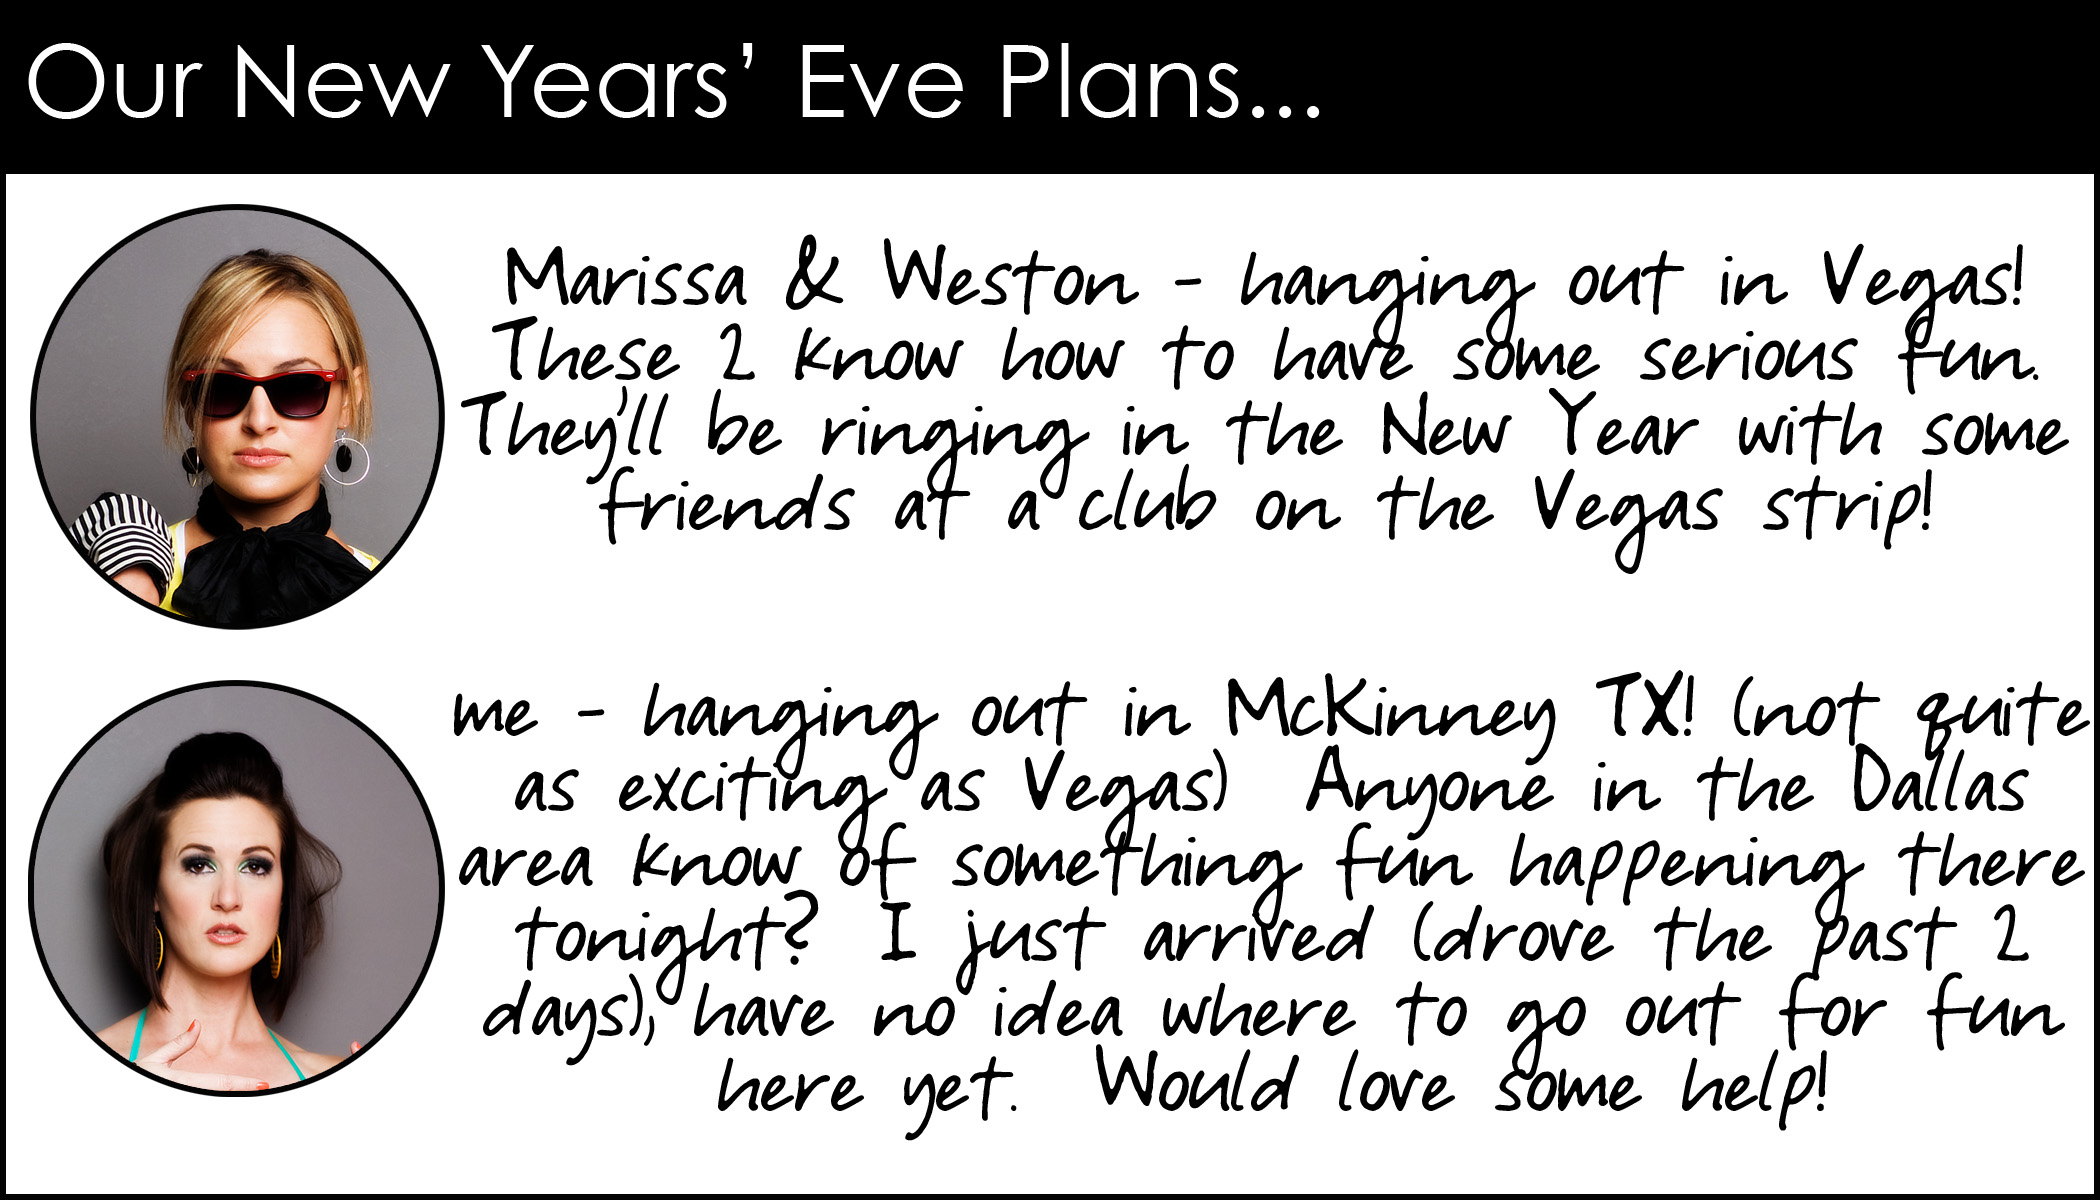 Our New Years’ Eve Plans...
Marissa & Weston - hanging out in Vegas!
These 2 know how to have some serious fun.
They'll be ringing in the New Year with some
friends at a club on the Vegas strip!
me - hanging out in McKinney TX! (not quite
as exciting as Vegas) Anyone in the Dallas
area know of something fun happening there
tonight? I just arrived (drove the past 2
days), have no idea where to go out for fun
here yet. Would love some help!